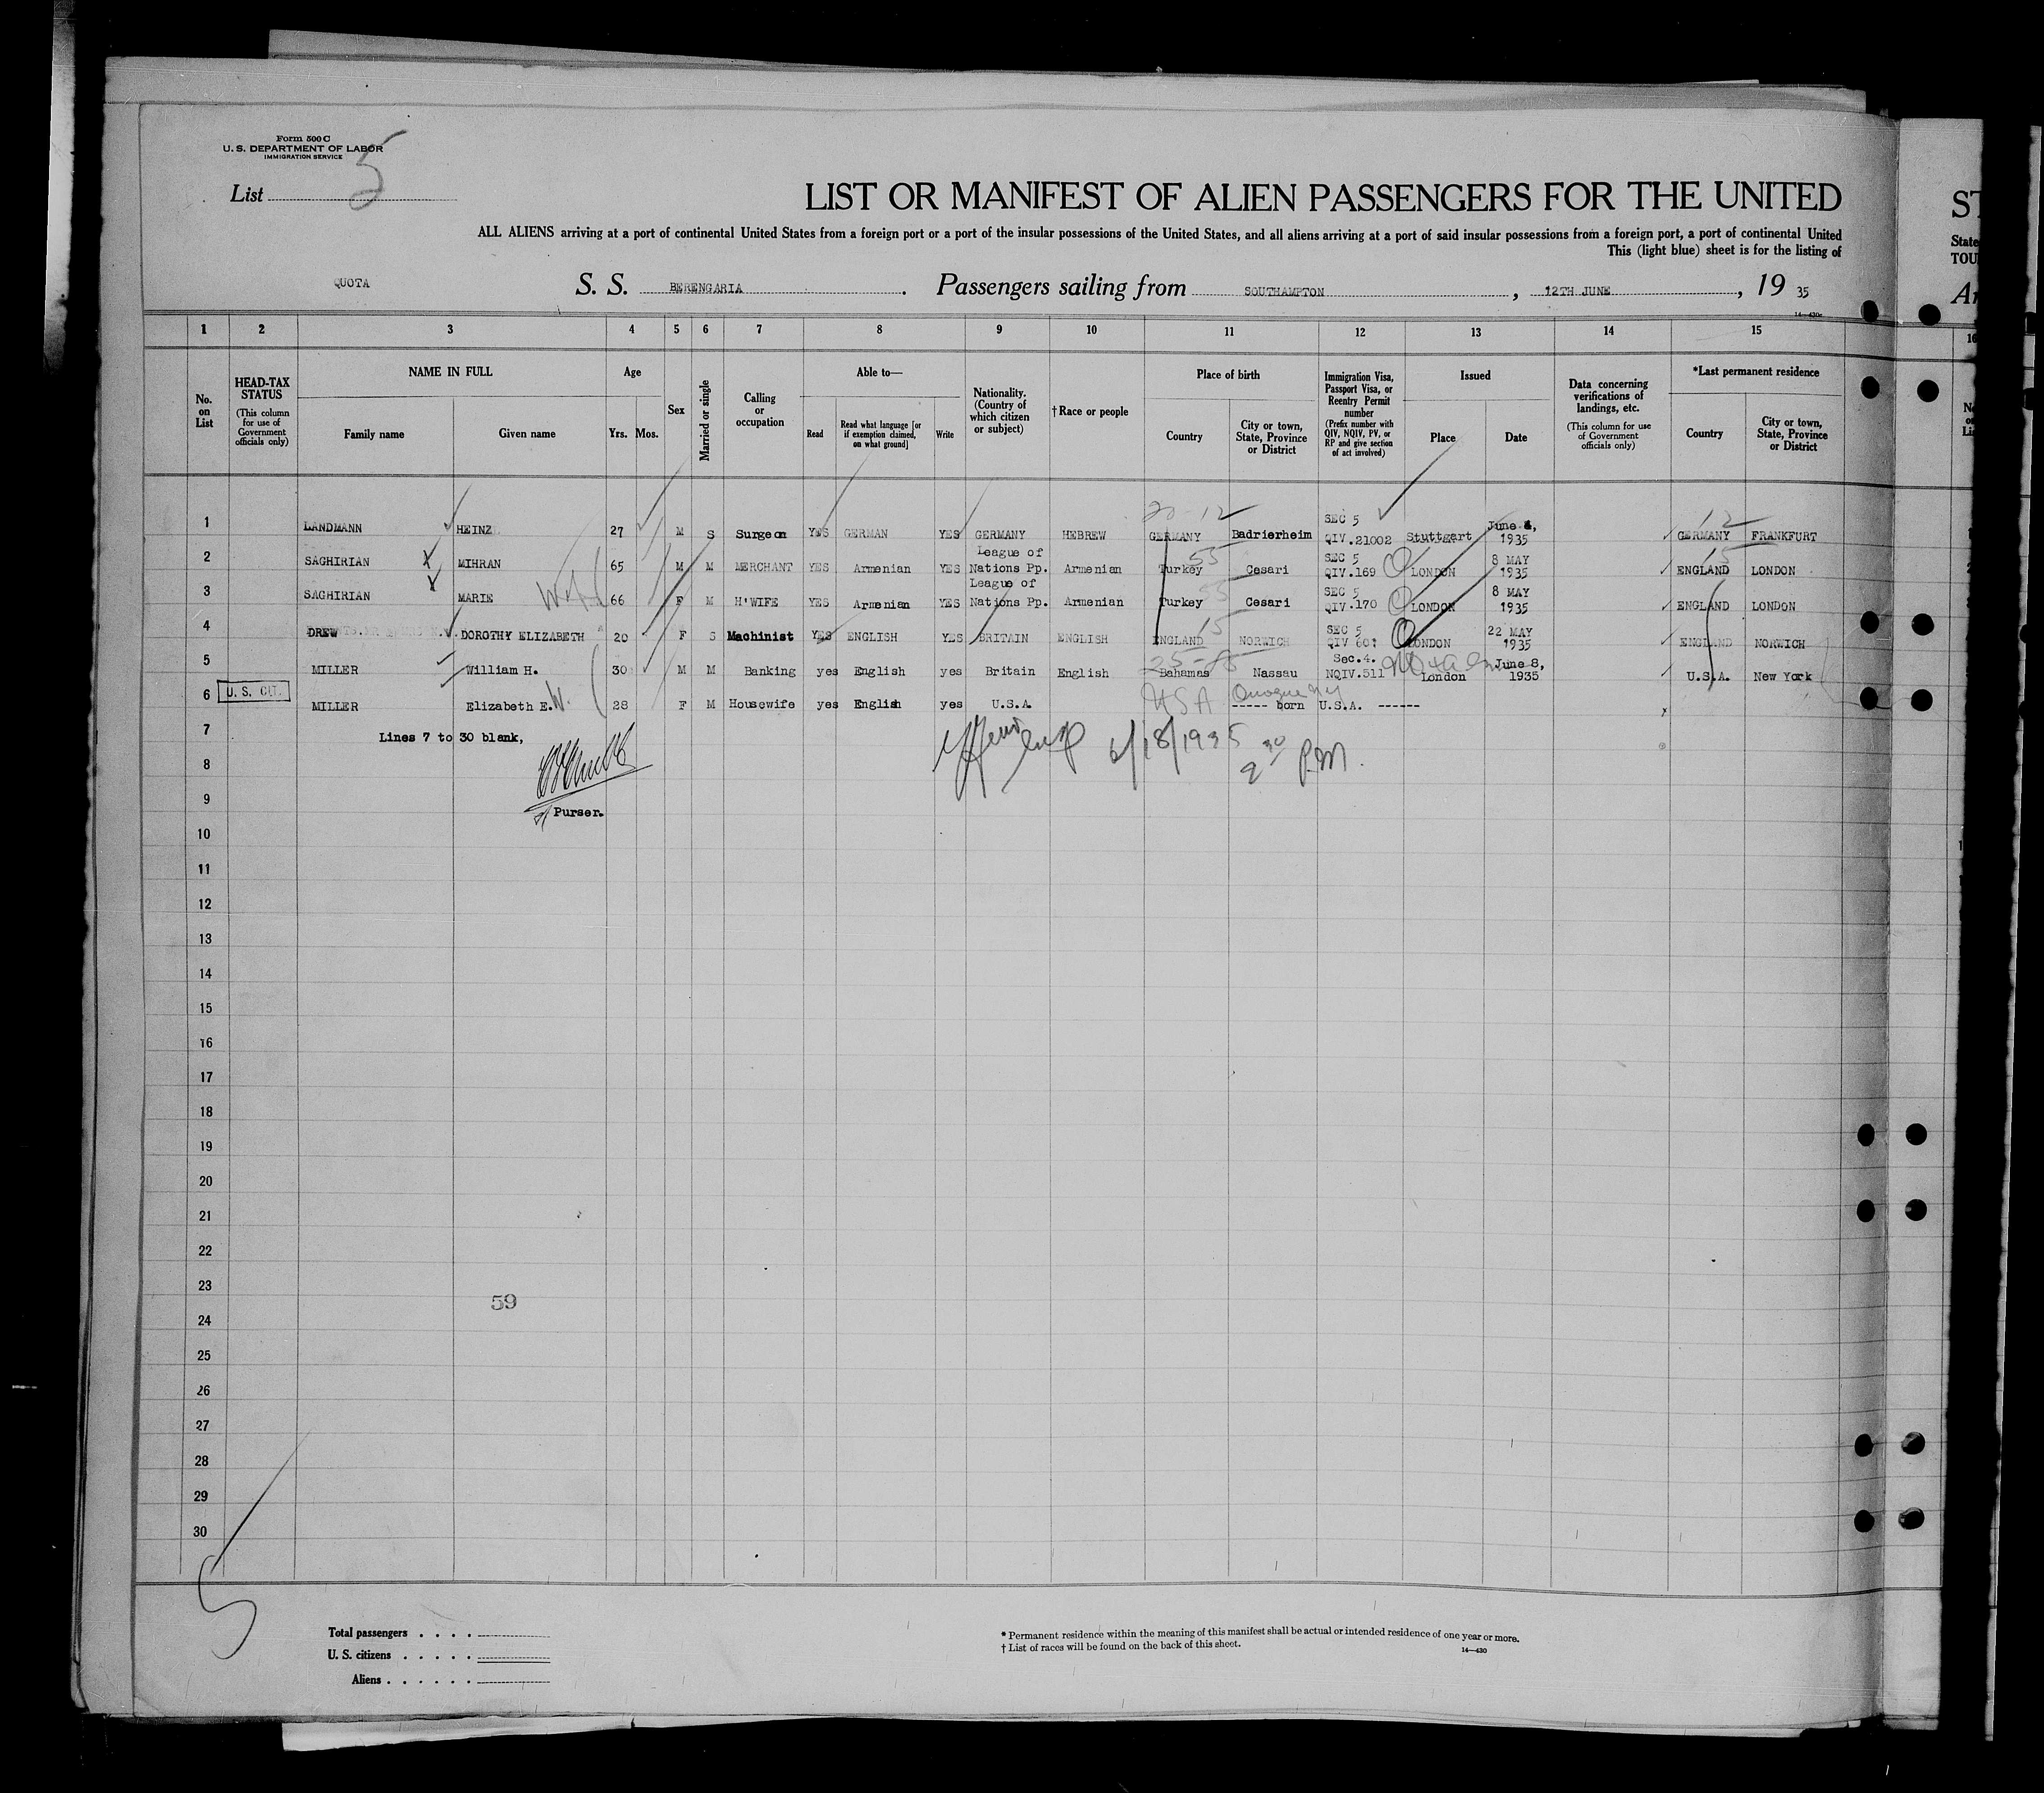 Form 500 C
U. S. DEPARTMENT OF LABOR
IMMIGRATION SERVICE
List 5
LIST OR MANIFEST OF ALIEN PASSENGERS FOR THE UNITED
ST
ALL ALIENS arriving at a port of continental United States from a foreign port or a port of the insular possessions of the United States, and all aliens arriving at a port of said insular possessions from a foreign port, a port of continental United
State
This (light blue) sheet is for the listing of
TOU
QUOTA S. S. BERENGARIA. Passengers sailing from SOUTHAMPTON, 12TH JUNE, 19 35
14—430c
1 2 3 4 5 6 7 8 9 10 11 12 13 14 15
No. on List
HEAD-TAX STATUS (This column for use of Government officials only)
NAME IN FULL
Family name Given name
Age
Yrs. Mos.
Sex
Married or single
Calling or occupation
Able to—
Read Read what language [or if exemption claimed, on what ground] Write
Nationality. (Country of which citizen or subject)
†Race or people
Place of birth
Country City or town, State, Province or District
Immigration Visa, Passport Visa, or Reentry Permit number (Prefix number with QIV, NQIV, PV, or RP and give section of act involved)
Issued
Place Date
Data concerning verifications of landings, etc. (This column for use of Government officials only)
*Last permanent residence
Country City or town, State, Province or District
1 LANDMANN HEINZ 27 M S Surgeon YES GERMAN YES GERMANY HEBREW GERMANY Badrierheim SEC 5 QIV.21002 Stuttgart June 4, 1935 GERMANY FRANKFURT
2 SAGHIRIAN MIHRAN 65 M M MERCHANT YES Armenian YES League of Nations Pp. Armenian Turkey Cesari SEC 5 QIV.169 LONDON 8 MAY 1935 ENGLAND LONDON
3 SAGHIRIAN MARIE 66 F M H'WIFE YES Armenian YES League of Nations Pp. Armenian Turkey Cesari SEC 5 QIV.170 LONDON 8 MAY 1935 ENGLAND LONDON
4 DREW DOROTHY ELIZABETH 20 F S Machinist YES ENGLISH YES BRITAIN ENGLISH ENGLAND NORWICH SEC 5 QIV LONDON 22 MAY 1935 ENGLAND NORWICH
5 MILLER William H. 30 M M Banking yes English yes Britain English Bahamas Nassau Sec.4. NQIV.511 London June 8, 1935 U.S.A. New York
6 U. S. CIT. MILLER Elizabeth E. 28 F M Housewife yes English yes U.S.A. USA Quogue NY ----- born U.S.A. ------
7 Lines 7 to 30 blank,
6/18/1935 2 30 P.M.
8
9 Purser.
10
11
12
13
14
15
16
17
18
19
20
21
22
23
59
24
25
26
27
28
29
30
5
Total passengers
U. S. citizens
Aliens
* Permanent residence within the meaning of this manifest shall be actual or intended residence of one year or more.
† List of races will be found on the back of this sheet.
14—430